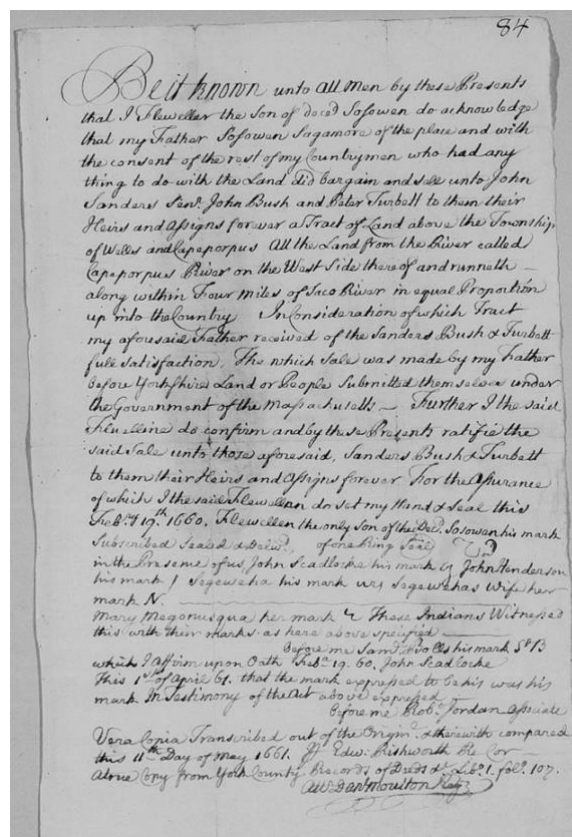 84
Be it known unto all men by these Presents
that I Flewellen the Son of deced Sosowen do acknowledge
that my Father Sosowen Sagamore of the place and with
the consent of the rest of my Countrymen who had any
thing to do with the Land did bargain and sell unto John
Sanders Senr. John Bush and Peter Turbett to them their
Heirs and Assigns forever a Tract of Land above the Township
of Wells and Capeporpus All the Land from the River called
Capeporpus River on the West Side thereof and runneth
along within Four Miles of Saco River in equal Proportion
up into the Country In Consideration of which Tract
my aforesaid Father received of the Sanders Bush & Turbett
full satisfaction. The which Sale was made by my Father
before Yorkshires Land or People Submitted themselves under
the Government of the Massachusetts – Further I the said
Fluelline do confirm and by these Presents ratifie the
said Sale unto those aforesaid, Sanders Bush & Turbett
to them their Heirs and Assigns forever For the Assurance
of which I the said Flewellen do set my Hand & Seal this
Febry 19.th 1660. Flewellen the only son of the Decd. Sosowen his mark
Subscribed Sealed & Delivd. of one Ring Seal
in the Presence of us John Scadlocke his mark John Henderson
his mark / Segeweha his mark Segewehas Wife her
mark N.
Mary Megonusqua her mark These Indians Witnessed
this with their marks as here above specified
Before me Saml. his mark
which I affirm upon Oath Feb. 19. 60. John Scadlocke
This 1st of April 61. that the mark expressed to be his was his
mark In Testimony of the Act above expressed
Before me Robt. Jordan Assiciate
Vera Copia Transcribed out of the Origin. & therewith compared
this 11th Day of May 1661. Edw. Rishworth Re Cor
A true Copy from York County Records of Deeds &c Libo. 1. folo. 107.
Att. Danl Moulton Regr